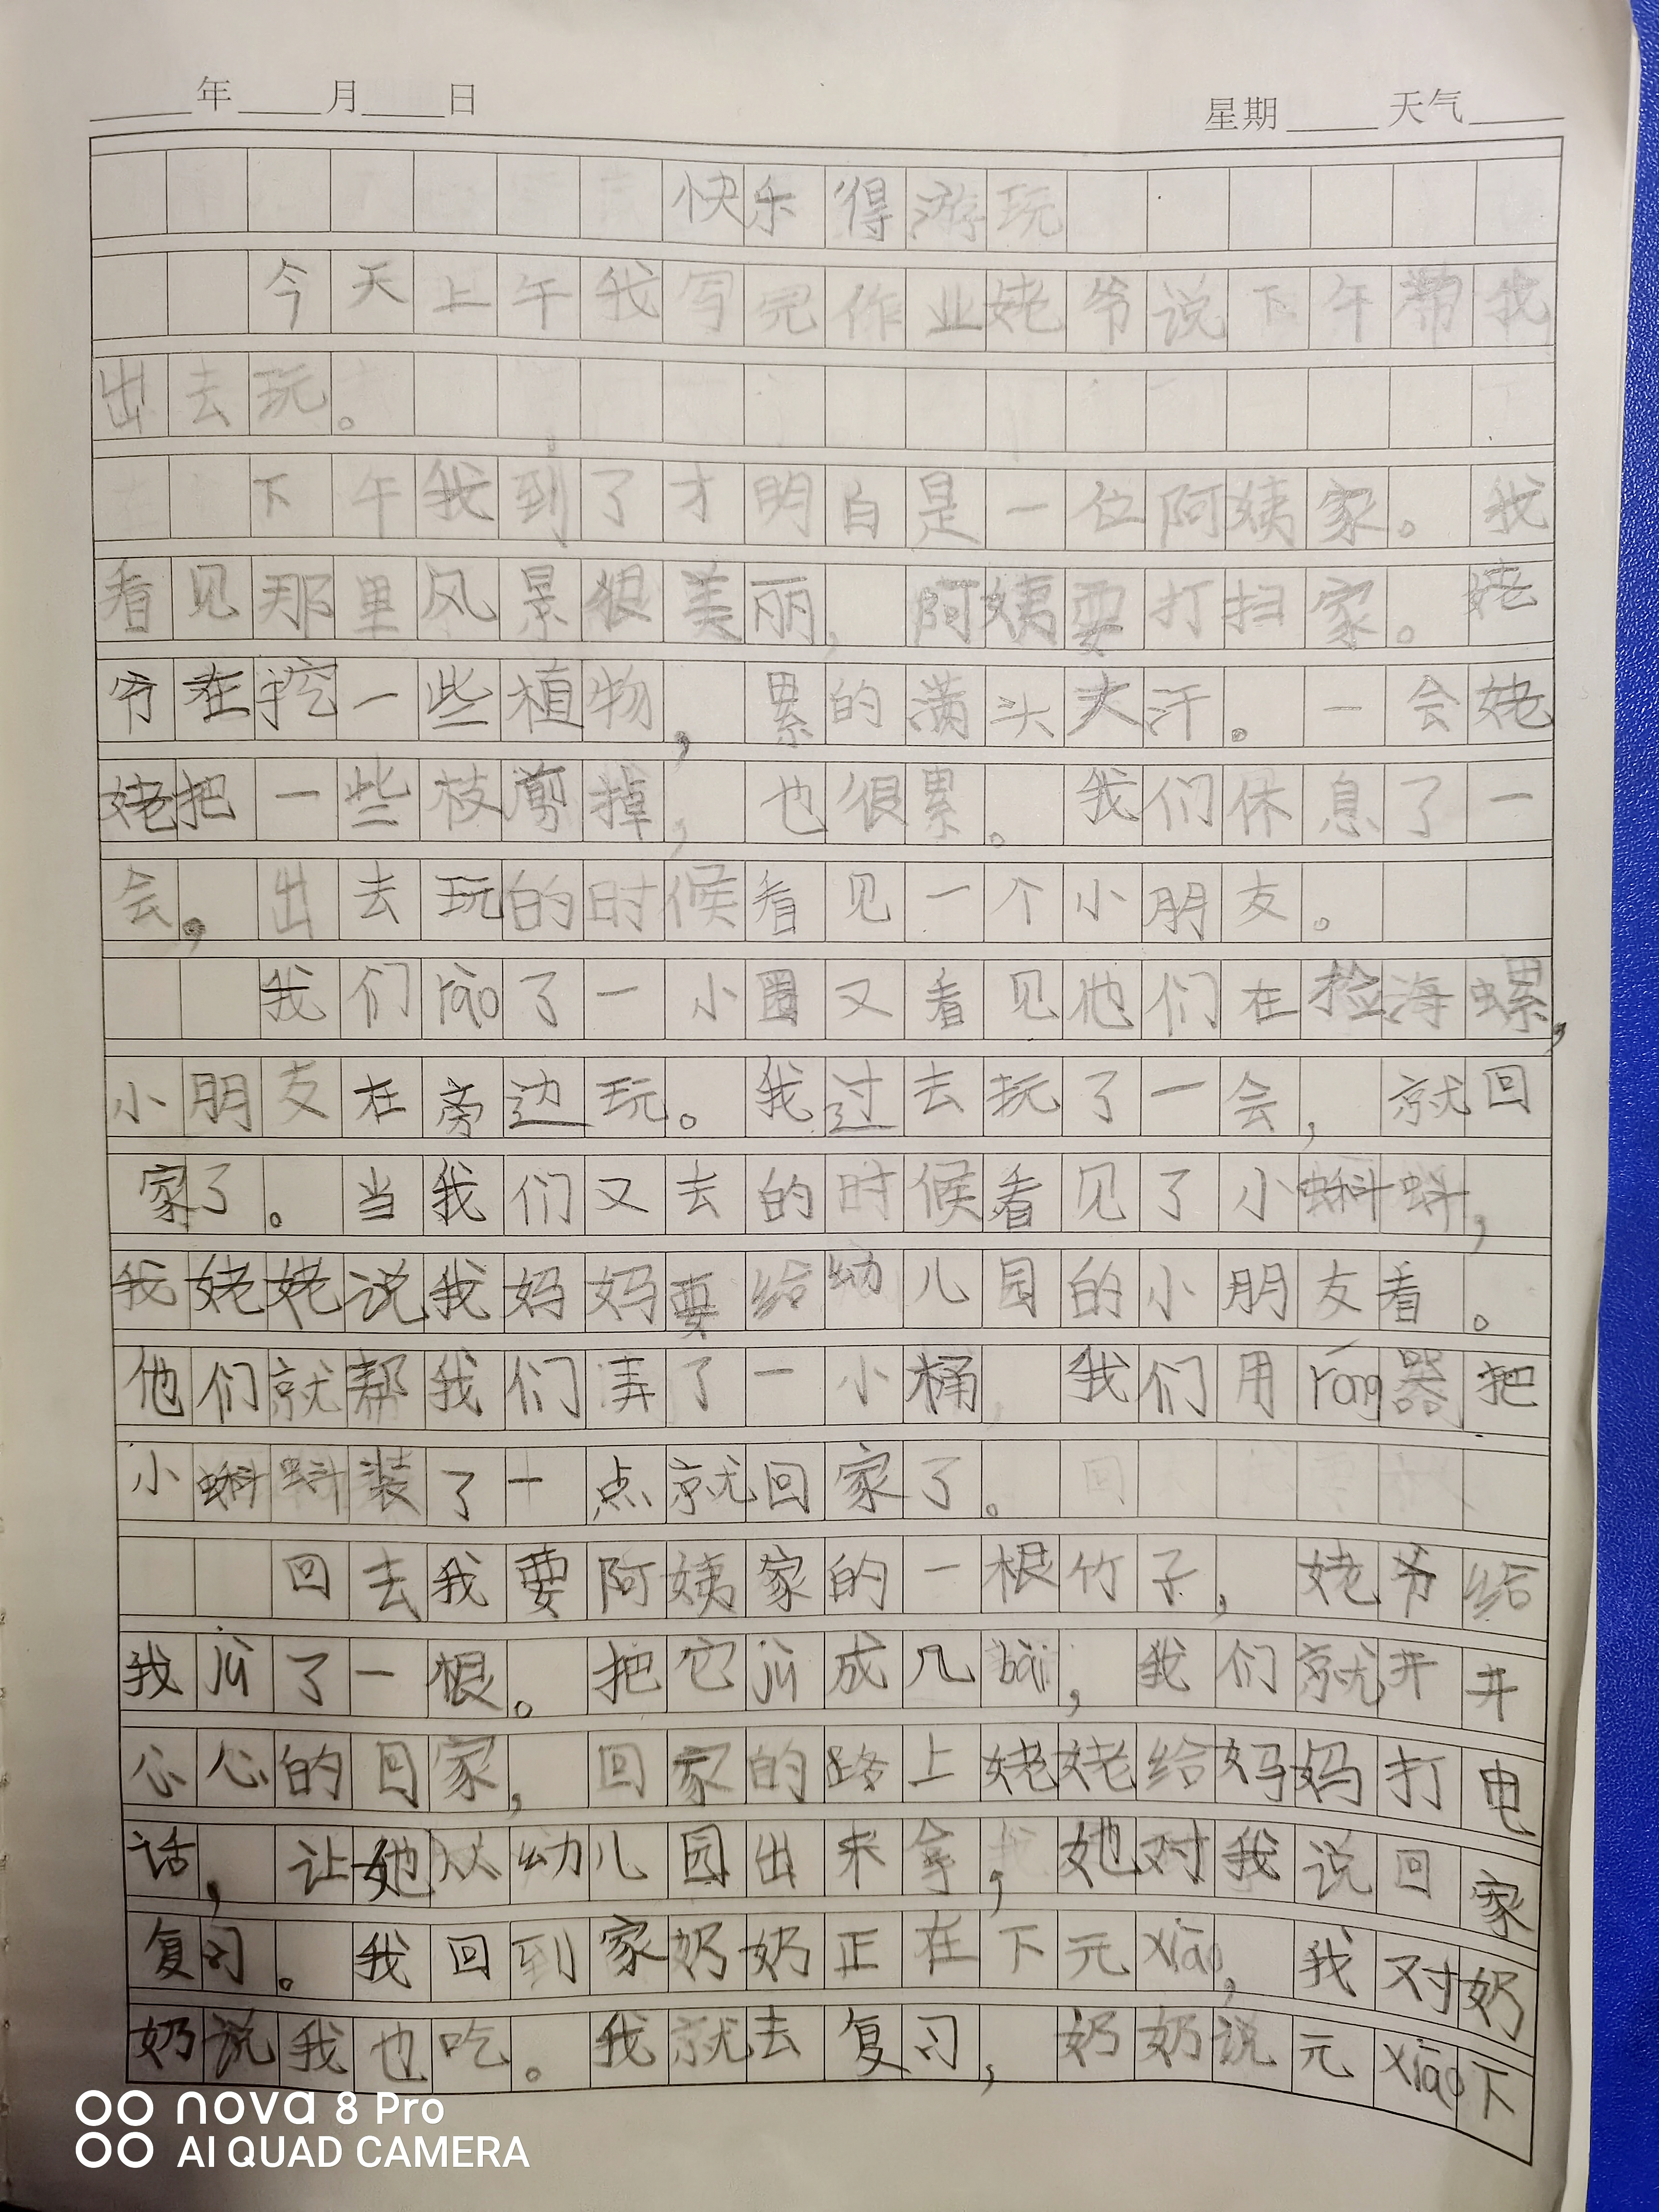 ____年____月____日 星期____天气____
快乐得游玩
今天上午我写完作业姥爷说下午带我
出去玩。
下午我到了才明白是一位阿姨家。我
看见那里风景很美丽，阿姨要打扫家。姥
爷在挖一些植物，累的满头大汗。一会姥
姥把一些枝剪掉，也很累。我们休息了一
会，出去玩的时候看见一个小朋友。
我们rào了一小圈又看见他们在捡海螺，
小朋友在旁边玩。我过去玩了一会，就回
家了。当我们又去的时候看见了小蝌蚪，
我姥姥说我妈妈要给幼儿园的小朋友看。
他们就帮我们弄了一小桶，我们用róng器把
小蝌蚪装了一点就回家了。
回去我要阿姨家的一根竹子，姥爷给
我jù了一根。把它jù成几bāi，我们就开开
心心的回家，回家的路上姥姥给妈妈打电
话，让她从幼儿园出来拿，她对我说回家
复习。我回到家奶奶正在下元xiāo，我对奶
奶说我也吃。我就去复习，奶奶说元xiāo下
nova 8 Pro
AI QUAD CAMERA